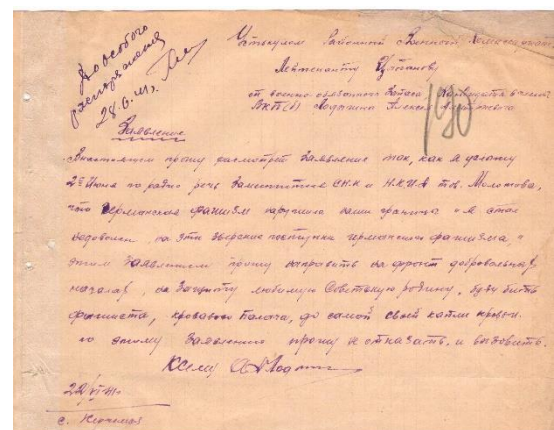 До особого
распоряжения
28.6.41г.
Районный Военный
Лейтенанту
от военно-обязанного запаса Кандидата в члены
ВКП(б) Алексея
190
Заявление
В настоящем прошу рассмотреть заявление так, как я услышал
22 Июня по радио речь Заместителя С.Н.К и Н.К.И.Д тов. Молотова,
что Германския фашизм нарушила наши граница и я стал
на эти зверские поступки германского фашизма,
этим заявлением прошу направить на фронт
на защиту любимую Советскую родину, буду бить
фашиста, кровавого палача, до самой своей капли крови.
по этому заявлению прошу не отказать. и вызовить.
К сему
22/VI 41г.
с.